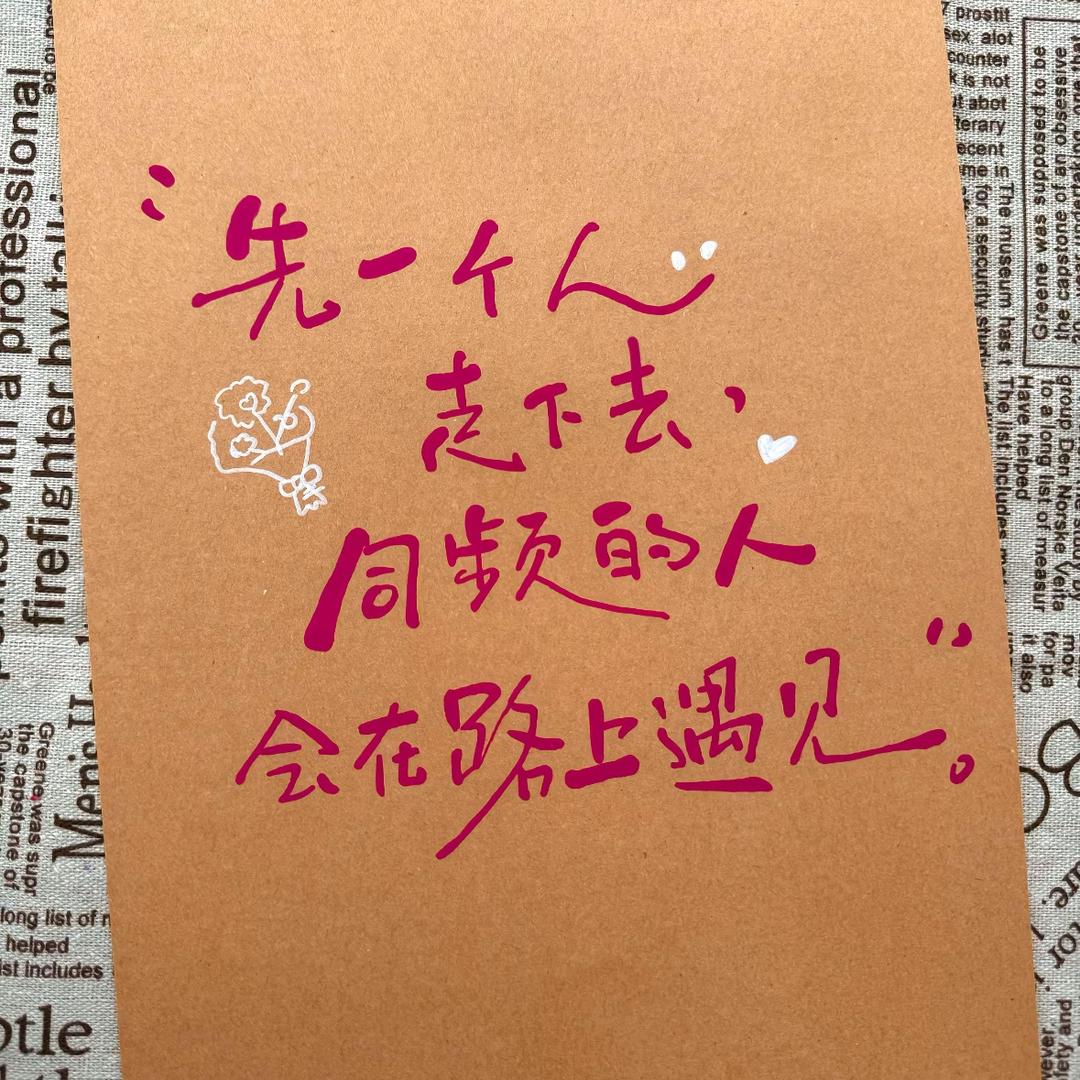 “先一个人
走下去，
同频的人
会在路上遇见”。
professional
with a
firefighter by
Greene was supr
the capstone of
long list of
helped
ist includes
prostit
sex alot
counter
k is not
ut abot
terary
ecent
me in
for a security
The museum has
The list includes
Greene was supposed to be
the capstone of an obsessive
undertaking, one that
group Den Norske Veita
to a long list of measur
Have helped
mov
for pa
it also